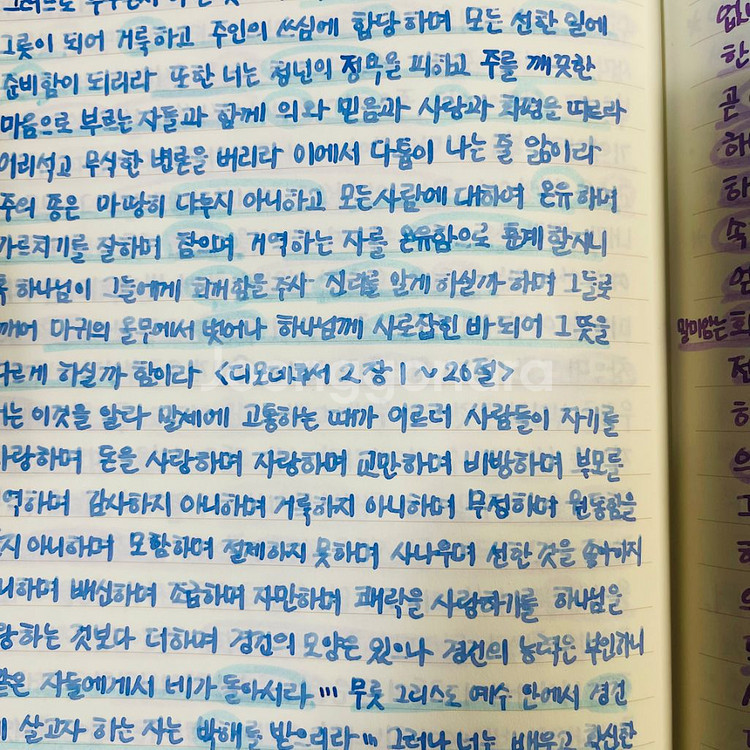 그릇이 되어 거룩하고 주인의 쓰심에 합당하며 모든 선한 일에
준비함이 되리라 또한 너는 청년의 정욕을 피하고 주를 깨끗한
마음으로 부르는 자들과 함께 의와 믿음과 사랑과 화평을 따르라
어리석고 무식한 변론을 버리라 이에서 다툼이 나는 줄 앎이라
주의 종은 마땅히 다투지 아니하고 모든사람에 대하여 온유하며
가르치기를 잘하며 참으며 거역하는 자를 온유함으로 훈계할지니
혹 하나님이 그들에게 회개함을주사 진리를 알게 하실까 하며 그들로
깨어 마귀의 올무에서 벗어나 하나님께 사로잡힌 바 되어 그 뜻을
따르게 하실까 함이라 <디모데후서 2장 1~26절>
너는 이것을 알라 말세에 고통하는 때가 이르러 사람들이 자기를
사랑하며 돈을 사랑하며 자랑하며 교만하며 비방하며 부모를
거역하며 감사하지 아니하며 거룩하지 아니하며 무정하며 원통함을
지 아니하며 모함하며 절제하지 못하며 사나우며 선한 것을 좋아하지
니하며 배신하며 조급하며 자만하며 쾌락을 사랑하기를 하나님을
랑하는 것보다 더하며 경건의 모양은 있으나 경건의 능력은 부인하니
같은 자들에게서 네가 돌아서라 ''' 무릇 그리스도 예수 안에서 경건
살고자 하는 자는 박해를 받으리라 ''' 그러나 너는 배우고 확신한
한
곤
하
하
속
말미암는
전
하
의
그
하
의